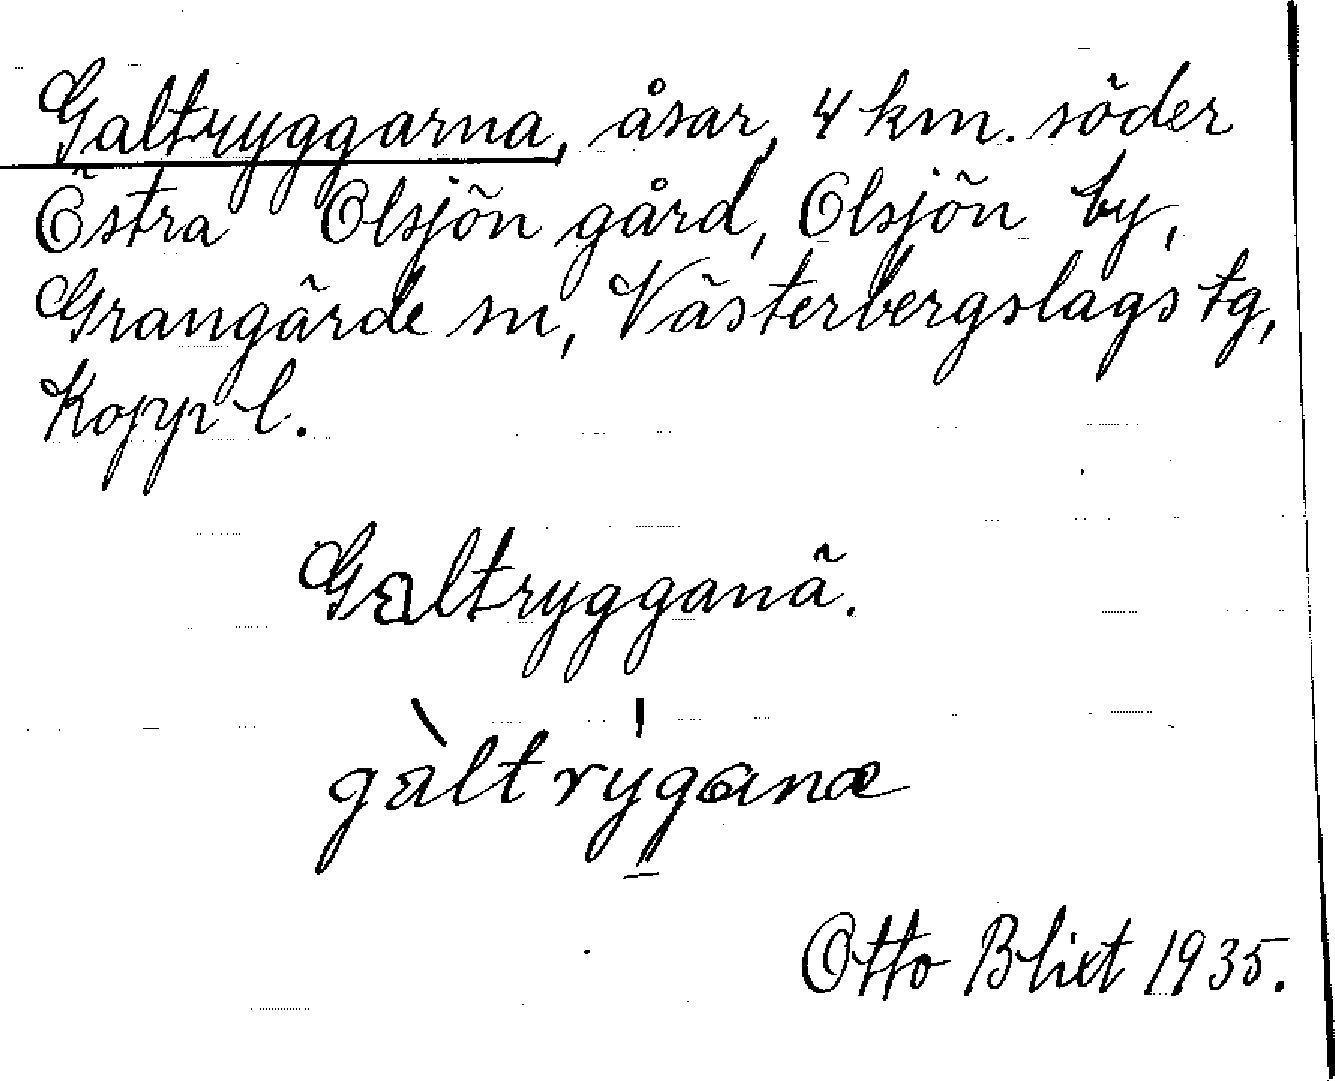 Galtryggarna, åsar, 4 km. söder
Östra Olsjön gård, Olsjön by,
Grangärde sn, Västerbergslags tg,
Kopp l.
Galtrygganä.
gàltrýganæ
Otto Blixt 1935.